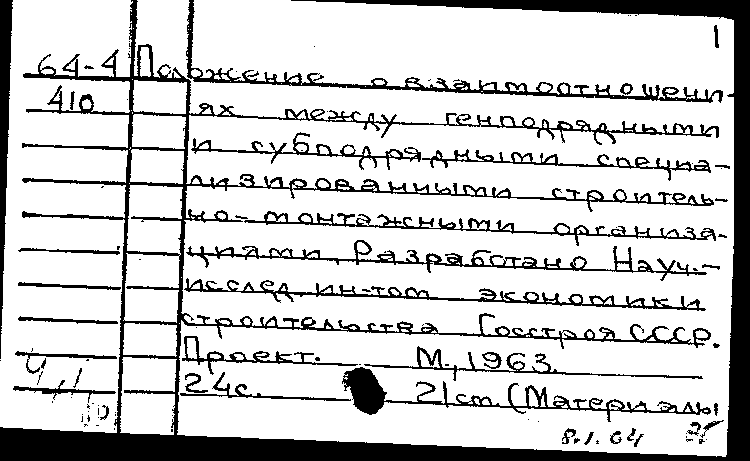 1
64-4 Положение о взаимоотношени-
410 ях между генподрядными
и субподрядными специа-
лизированными строитель-
но-монтажными организа-
циями. Разработано Науч.-
исслед. ин-том экономики
строительства Госстроя СССР.
Проект. М., 1963.
24с. 21 cm. (Материалы
8.1.64